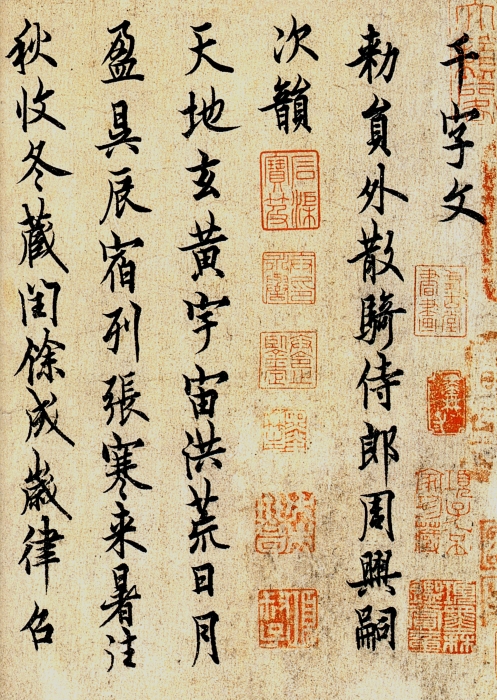 千字文
勅員外散騎侍郎周興嗣
次韻
天地玄黃宇宙洪荒日月
盈昃辰宿列張寒来暑往
秋收冬藏閏餘成歲律召